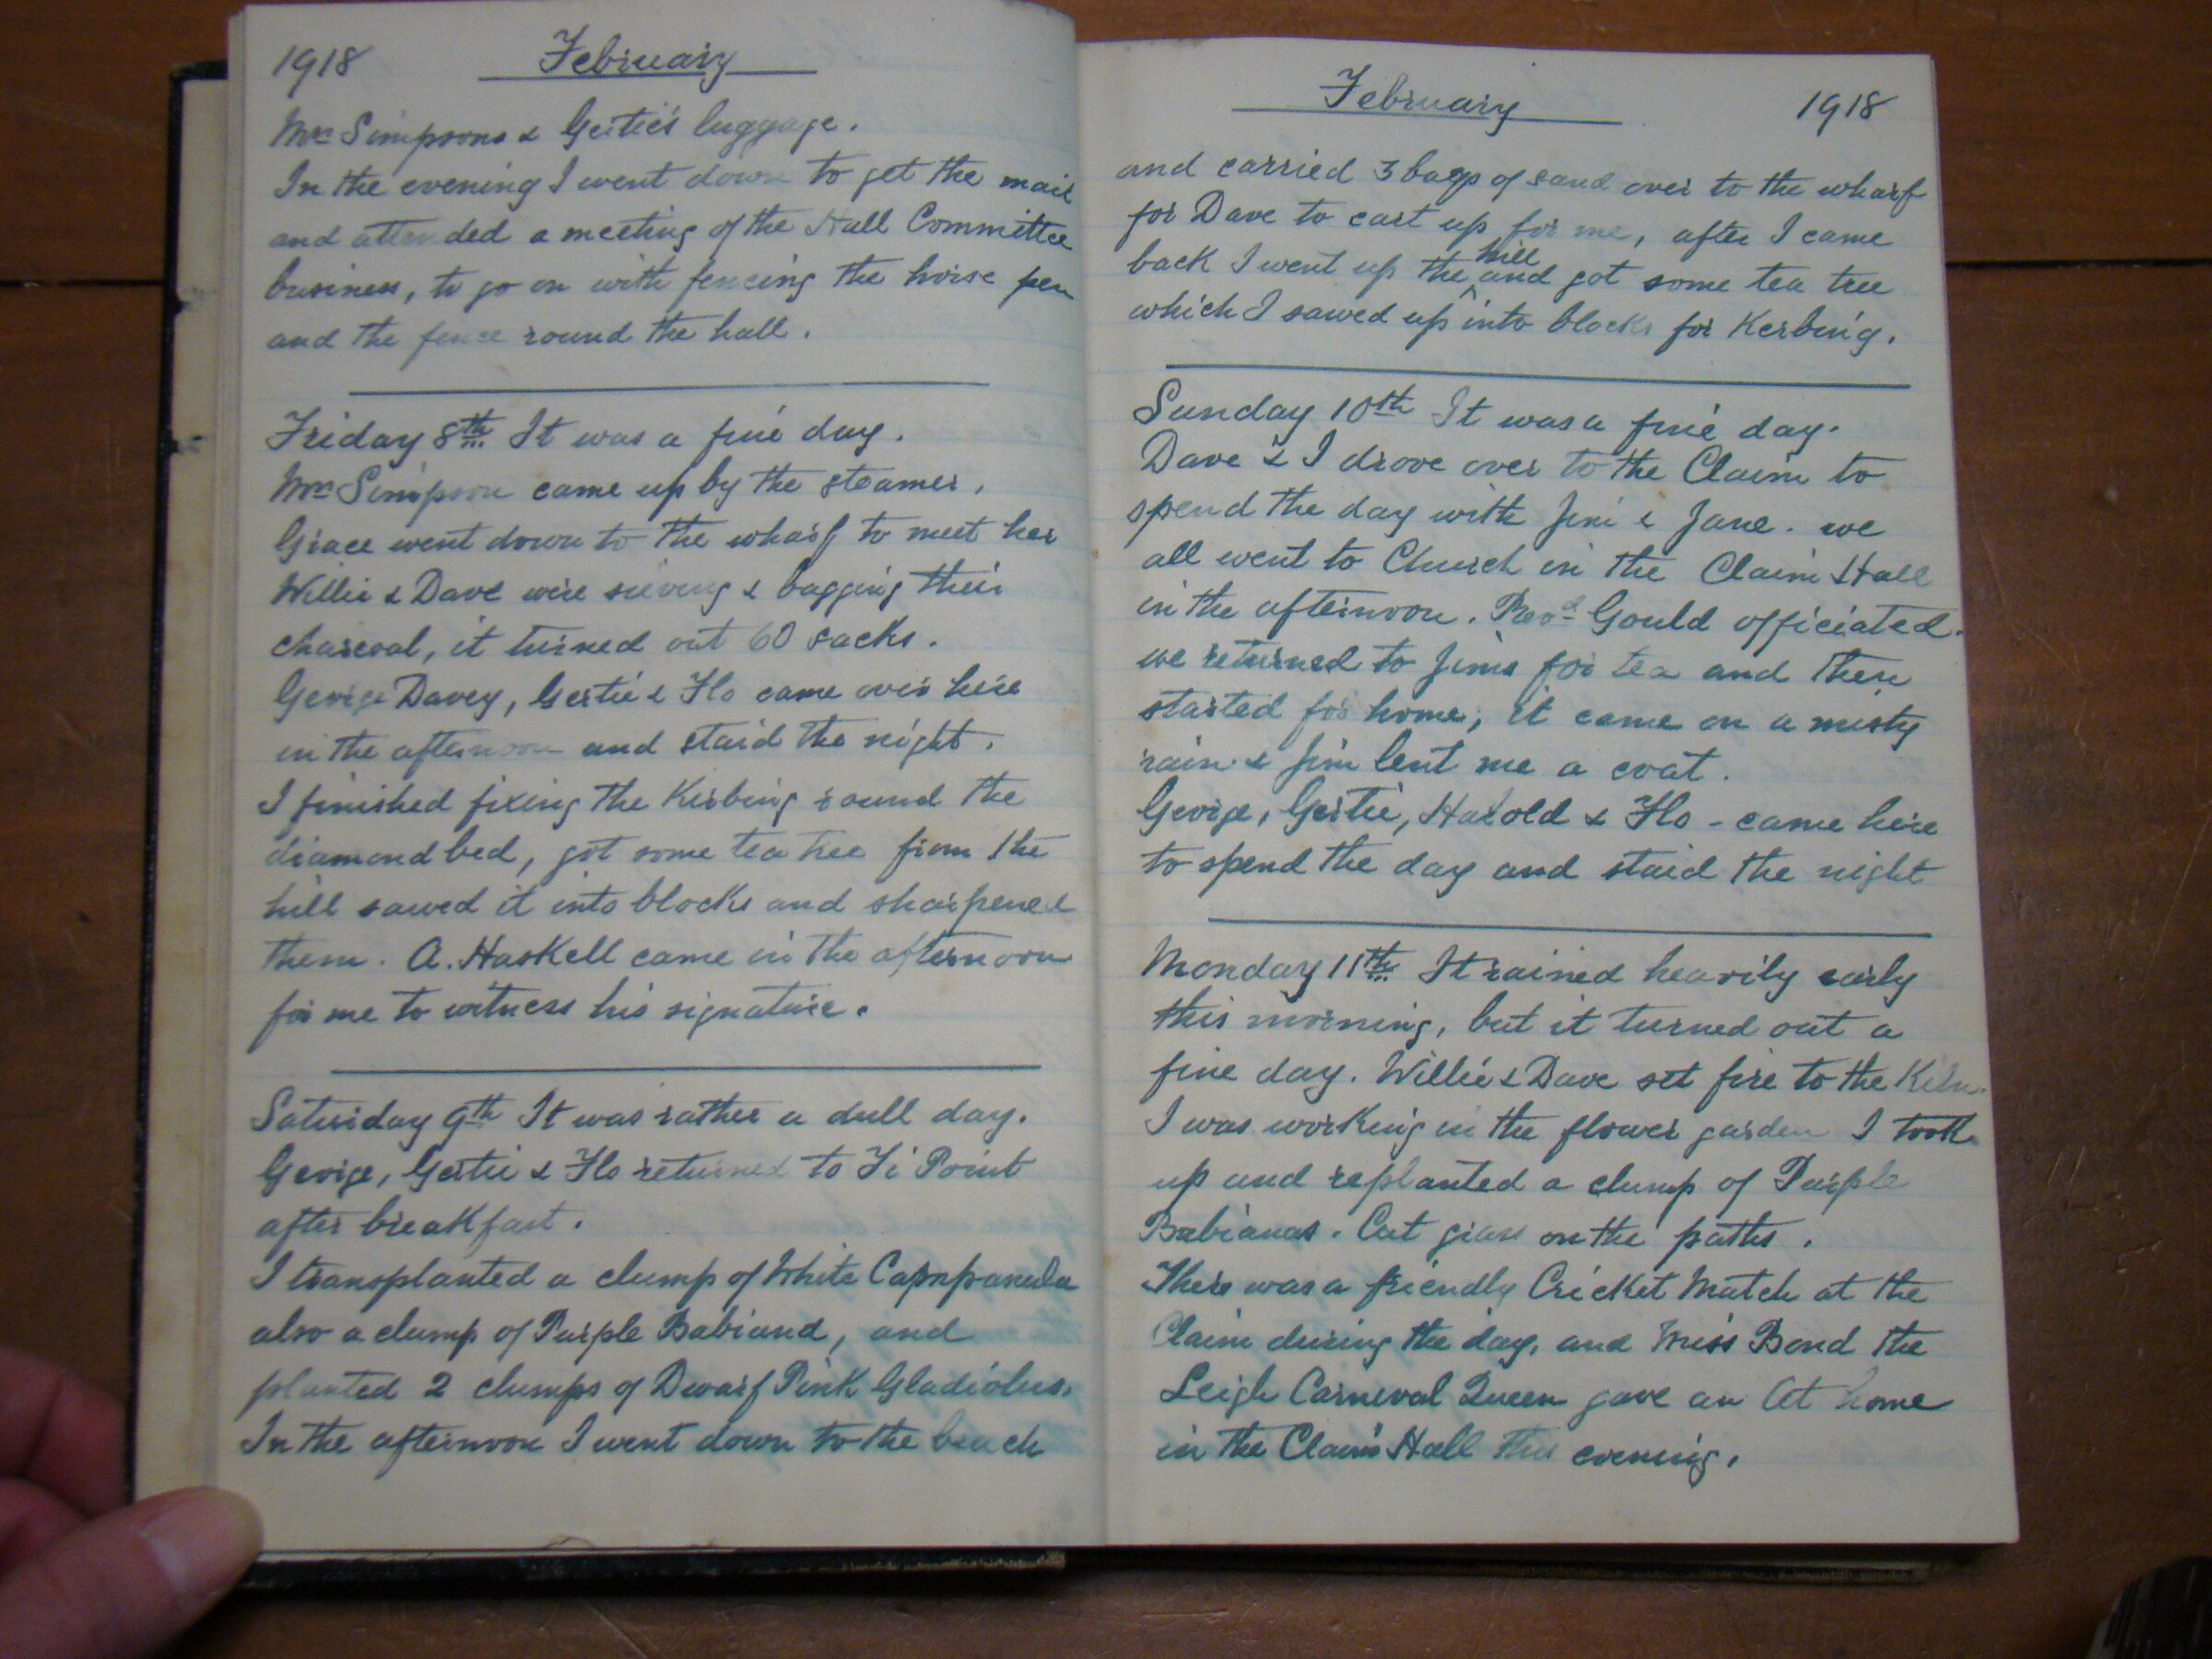 1918 February
Mrs Simpsons & Gertie's luggage.
In the evening I went down to get the mail
and attended a meeting of the Hall Committee
business, to go on with fencing the horse pen
and the fence round the hall.
Friday 8th It was a fine day.
Mrs Simpson came up by the steamer,
Grace went down to the wharf to meet her
Willie & Dave were sieving & bagging their
charcoal, it turned out 60 sacks.
George Davey, Gertie & Flo came over here
in the afternoon and staid the night.
I finished fixing the Kerbing round the
diamond bed, got some tea tree from the
hill sawed it into blocks and sharpened
them. A. Haskell came in the afternoon
for me to witness his signature.
Saturday 9th It was rather a dull day.
George, Gertie & Flo returned to Ti Point
after breakfast.
I transplanted a clump of White Campanula
also a clump of Purple Babiand, and
planted 2 clumps of Dwarf Pink Gladiolus.
In the afternoon I went down to the beach
February 1918
and carried 3 bags of sand over to the wharf
for Dave to cart up for me, after I came
back I went up the hill and got some tea tree
which I sawed up into blocks for Kerbing.
Sunday 10th It was a fine day.
Dave & I drove over to the Claim to
spend the day with Jim & Jane. we
all went to Church in the Claim Hall
in the afternoon. Revd Gould officiated.
we returned to Jims for tea and then
started for home, it came on a misty
rain & Jim lent me a coat.
George, Gertie, Harold & Flo - came here
to spend the day and staid the night
Monday 11th It rained heavily early
this morning, but it turned out a
fine day. Willie & Dave set fire to the Kiln.
I was working in the flower garden I took
up and replanted a clump of Purple
Babianas. Cut grass on the paths.
There was a friendly Cricket Match at the
Claim during the day, and Miss Bond the
Leigh Carneval Queen gave an At home
in the Claim Hall this evening.